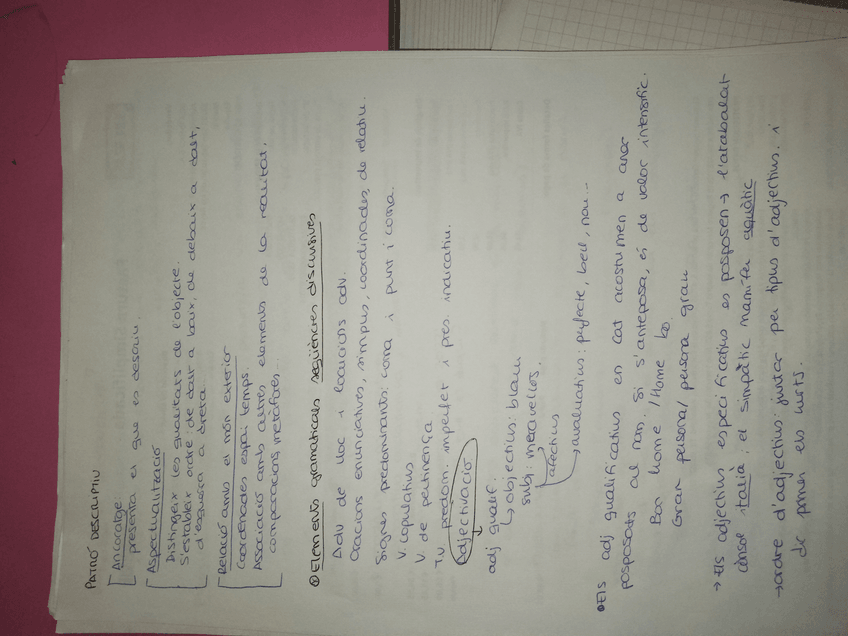 PATRÓ DESCRIPTIU
Ancoratge
presenta el que es descriu.
Aspectualització
Distingeix les qualitats de l'objecte.
S'estableix ordre: de dalt a baix, de debaix a dalt,
d'esquerra a dreta
Relació amb el món exterior
Coordenades espai temps.
Associació amb altres elements de la realitat,
comparacions, metàfores...
Elements gramaticals seqüències discursives
Adv de lloc i locucions adv.
Oracions enunciatives, simples, coordinades, de relatiu.
Signes predominants: coma i punt i coma.
V. copulatius
V de pertinença
T.V. predom. imperfet i pres. indicatiu.
Adjectivació
adj qualif.
↳ objectius: blau
subj: meravellós.
afectius
→ avaluatius: perfecte, bell, nou...
• Els adj qualificatius en cat acostumen a anar
posposats al nom. Si s'anteposa, és de valor intensific.
Bon home / Home bo.
Gran persona / persona gran
→ Els adjectius especificatius es posposen → l'atabalat
cònsol italià; el simpàtic mamífer aquàtic
→ ordre d'adjectius: juntar per tipus d'adjectius. i
de primer els curts.